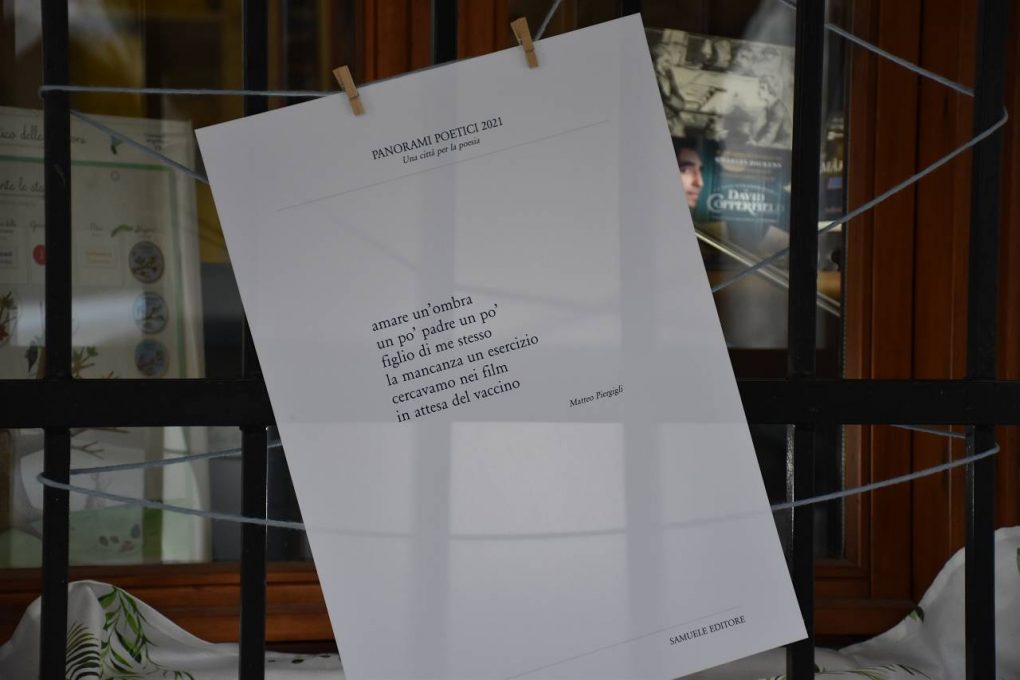 PANORAMI POETICI 2021
Una città per la poesia
amare un'ombra
un po' padre un po'
figlio di me stesso
la mancanza un esercizio
cercavamo nei film
in attesa del vaccino
Matteo Piergigli
SAMUELE EDITORE
CHARLES DICKENS
DAVID
COPPERFIELD